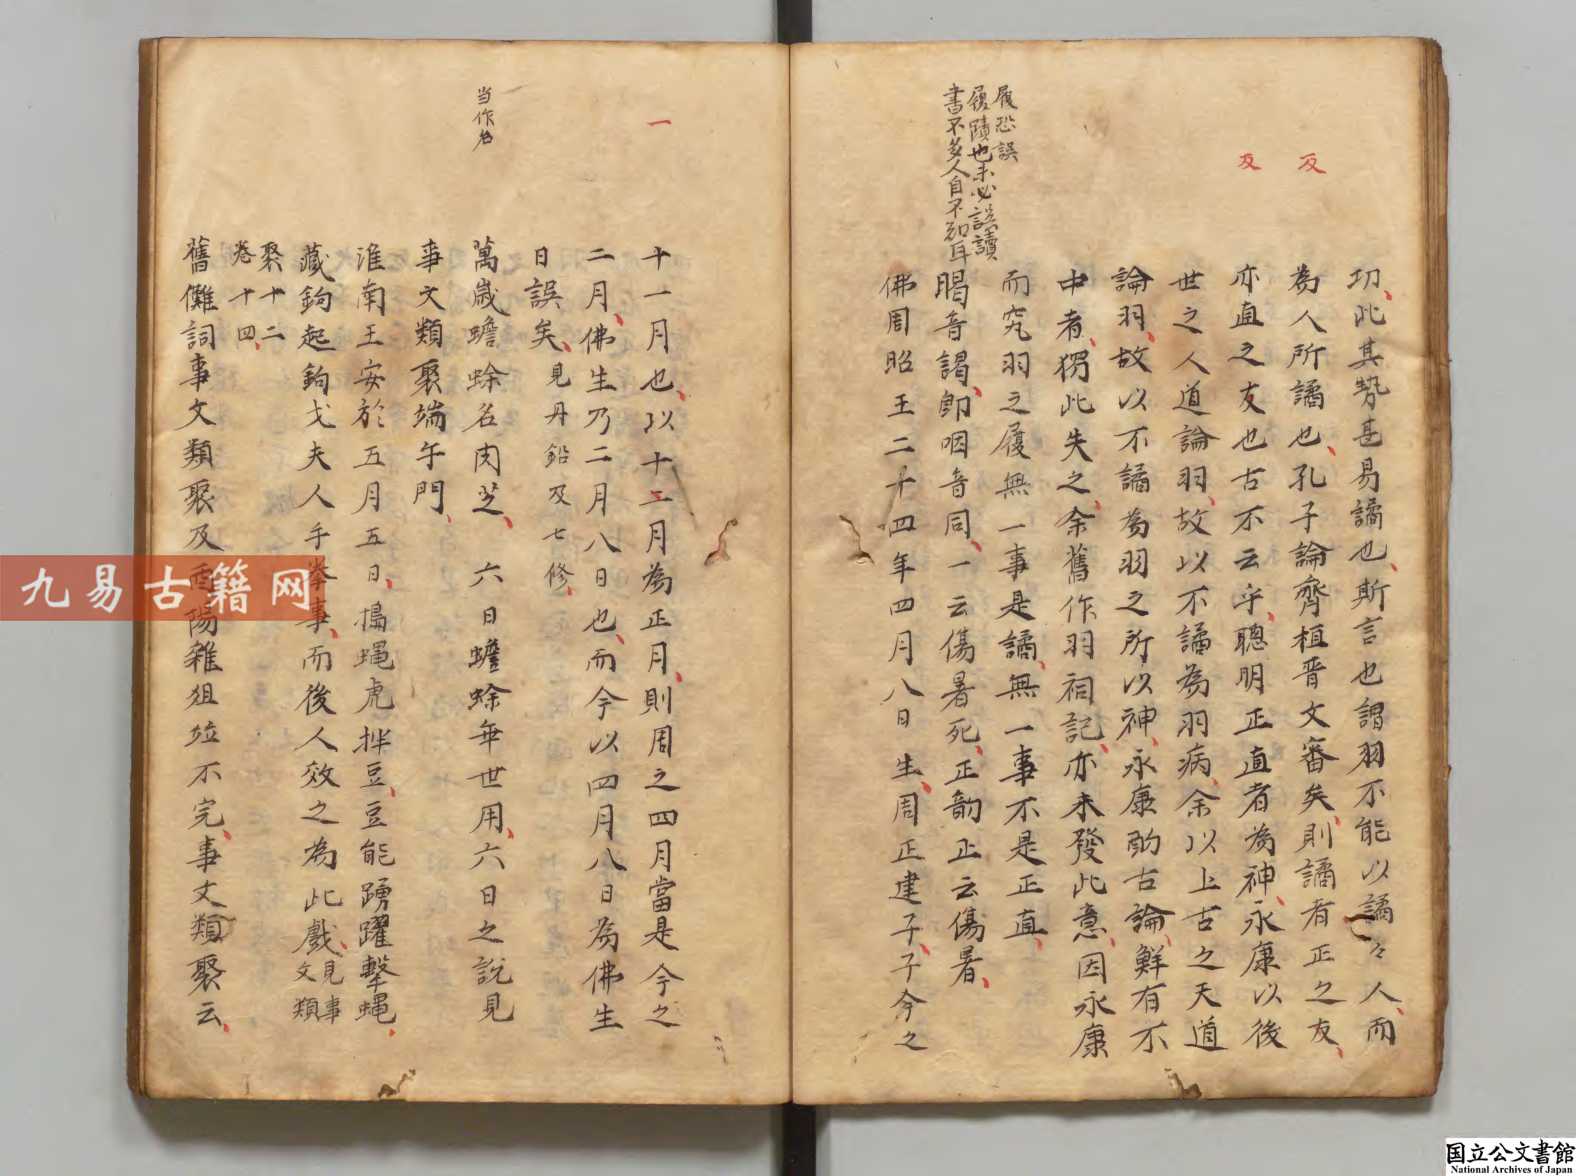 反
反
履恐誤
履蹟也未必誤讀
書不多人自不知耳
功此其勢甚易譎也斯言也謂羽不能以譎々人而
為人所譎也孔子論齊桓晋文審矣則譎者正之友
亦直之友也古不云乎聰明正直者為神永康以後
世之人道論羽故以不譎為羽病余以上古之天道
論羽故以不譎為羽之所以神永康酌古論鮮有不
中者獨此失之余舊作羽祠記亦未發此意因永康
而究羽之履無一事是譎無一事不是正直
暍音謁卽咽音同一云傷暑死正韵止云傷暑
佛周昭王二十四年四月八日生周正建子子今之
一
当作名
十一月也以十二月為正月則周之四月當是今之
二月佛生乃二月八日也而今以四月八日為佛生
日誤矣見丹鉛及七修
萬歳蟾蜍名肉芝六日蟾蜍無世用六日之說見
事文類聚端午門
淮南王安於五月五日搗蝿虎拌豆豆能踴躍擊蝿
藏鉤起鉤弋夫人手拳事而後人效之為此戲見事
文類
聚十二
卷十四
舊儺詞事文類聚及酉陽雜俎竝不完事文類聚云
九易古籍网
国立公文書館
National Archives of Japan